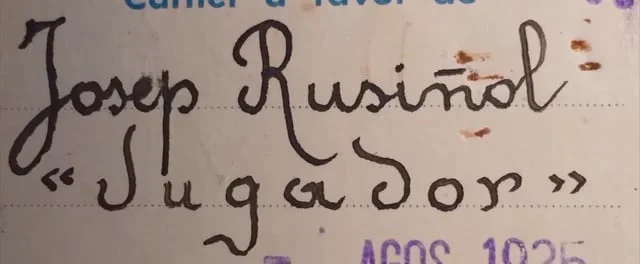 Carnet a favor de
Josep Rusiñol
“Jugador”
AGOS 1925